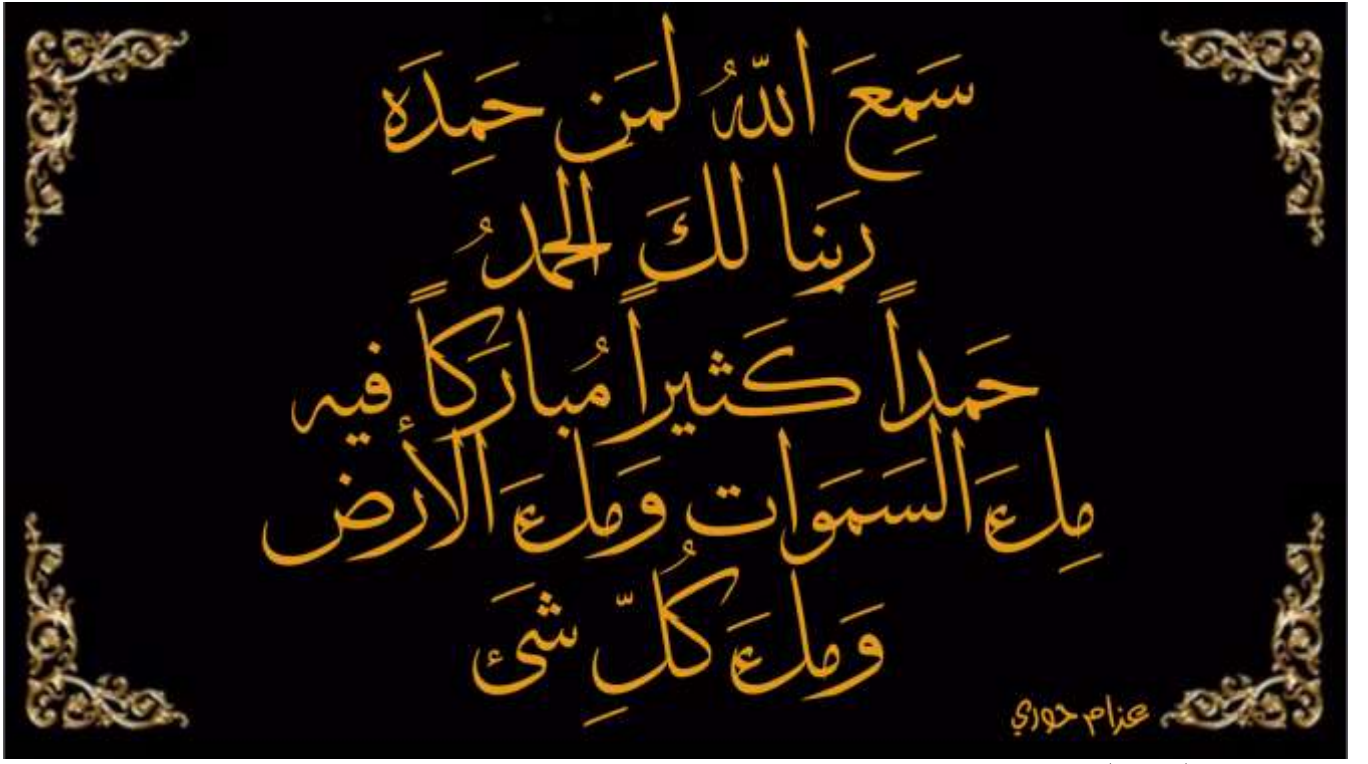 سَمِعَ اللّهُ لمَن حَمِدَه
رَبنَا لكَ الحمدُ
حَمَداً كَثيراً مُبارَكاً فيه
مِلءَ السَمَوات وَملءَ الأرض
وَملءَ كُلِّ شَئ
عزام حوري